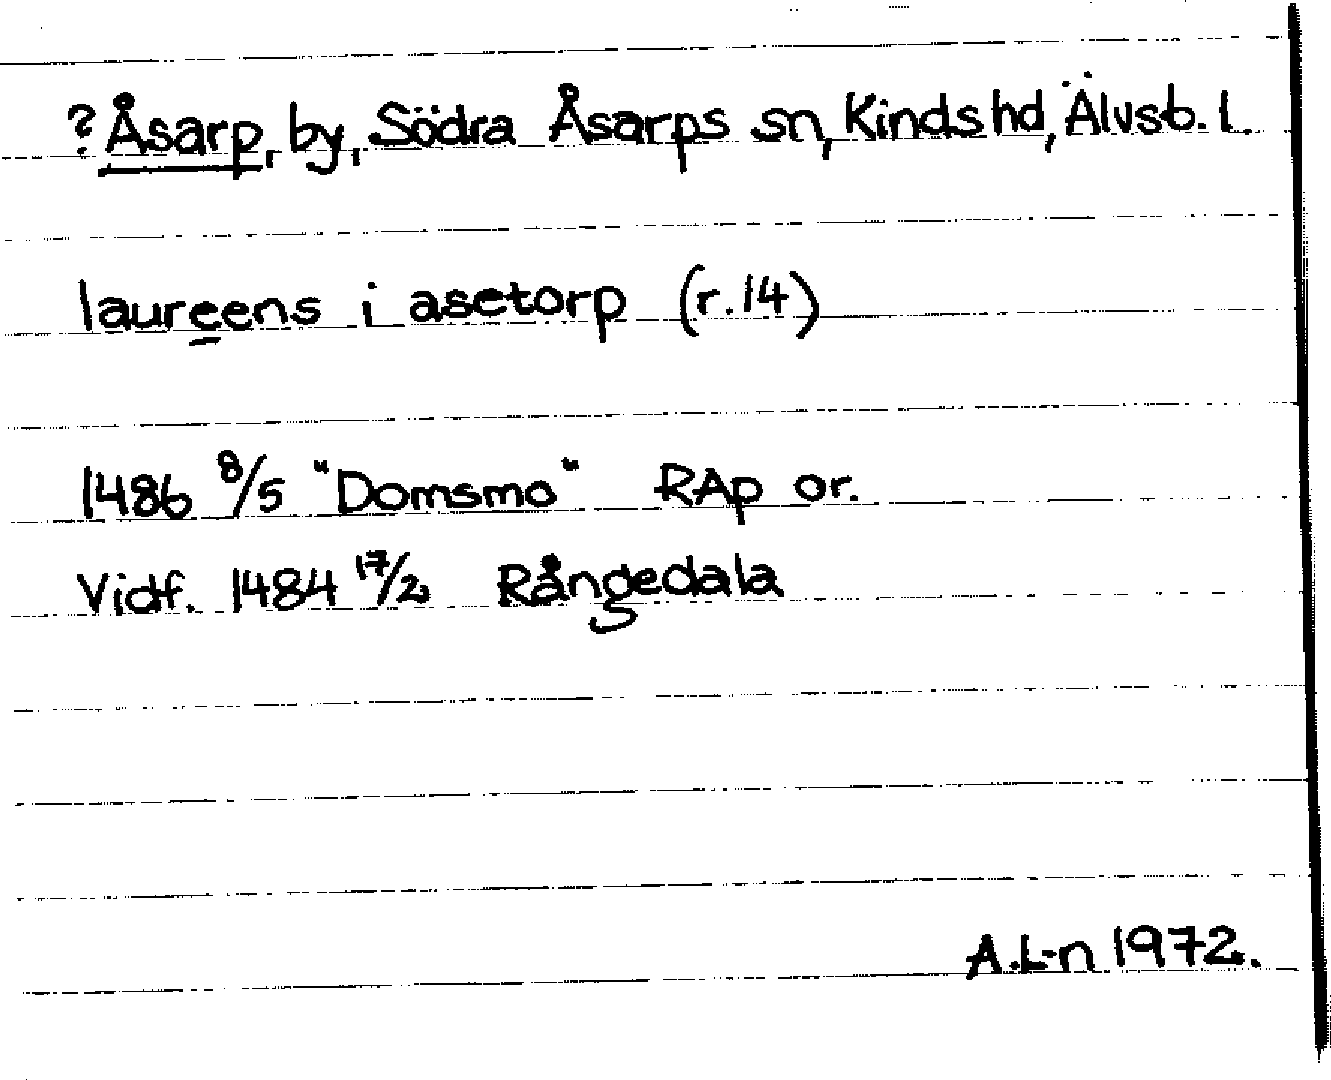 ? Åsarp, by, Södra Åsarps sn, Kinds hd, Älvsb. l.
laureens i asetorp (r.14)
1486 8/5 "Domsmo" RAp or.
Vidf. 1484 17/2 Rångedala
A.L-n 1972.